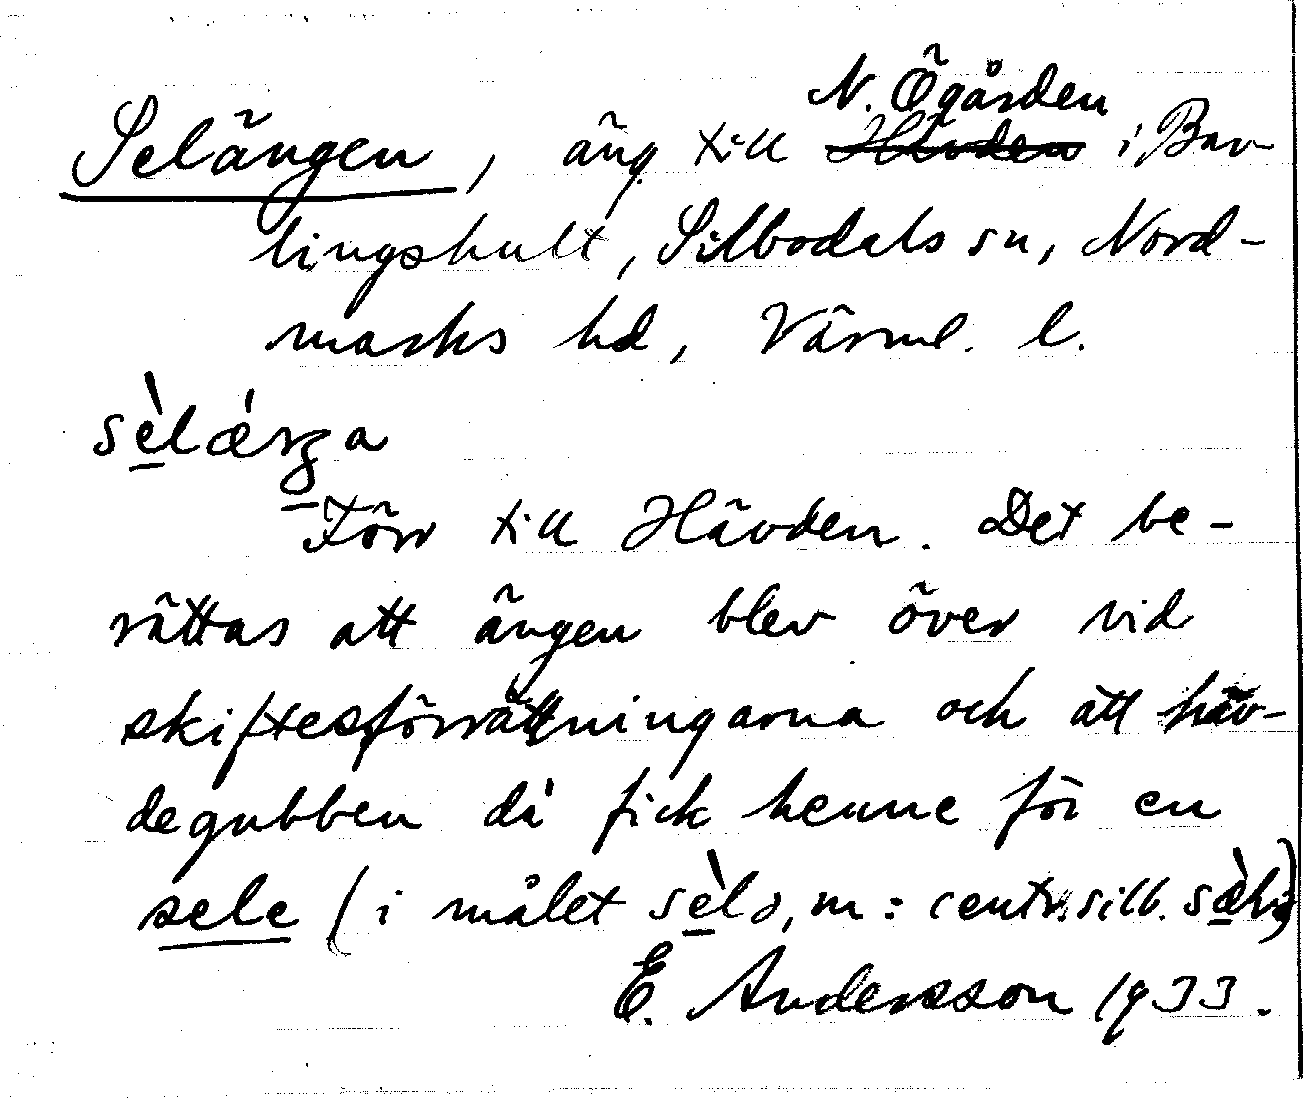 N. Ögården
Selängen, äng till Hävden i Bav-
lingshult, Silbodals sn, Nord-
marks hd, Värml. l.
sèlǽŋa
Förr till Hävden. Det be-
rättas att ängen blev över vid
skiftesförrättningarna och att häv-
degubben då fick henne för en
sele (i målet sèlə, m: centr. silb.
E. Andersson 1933.